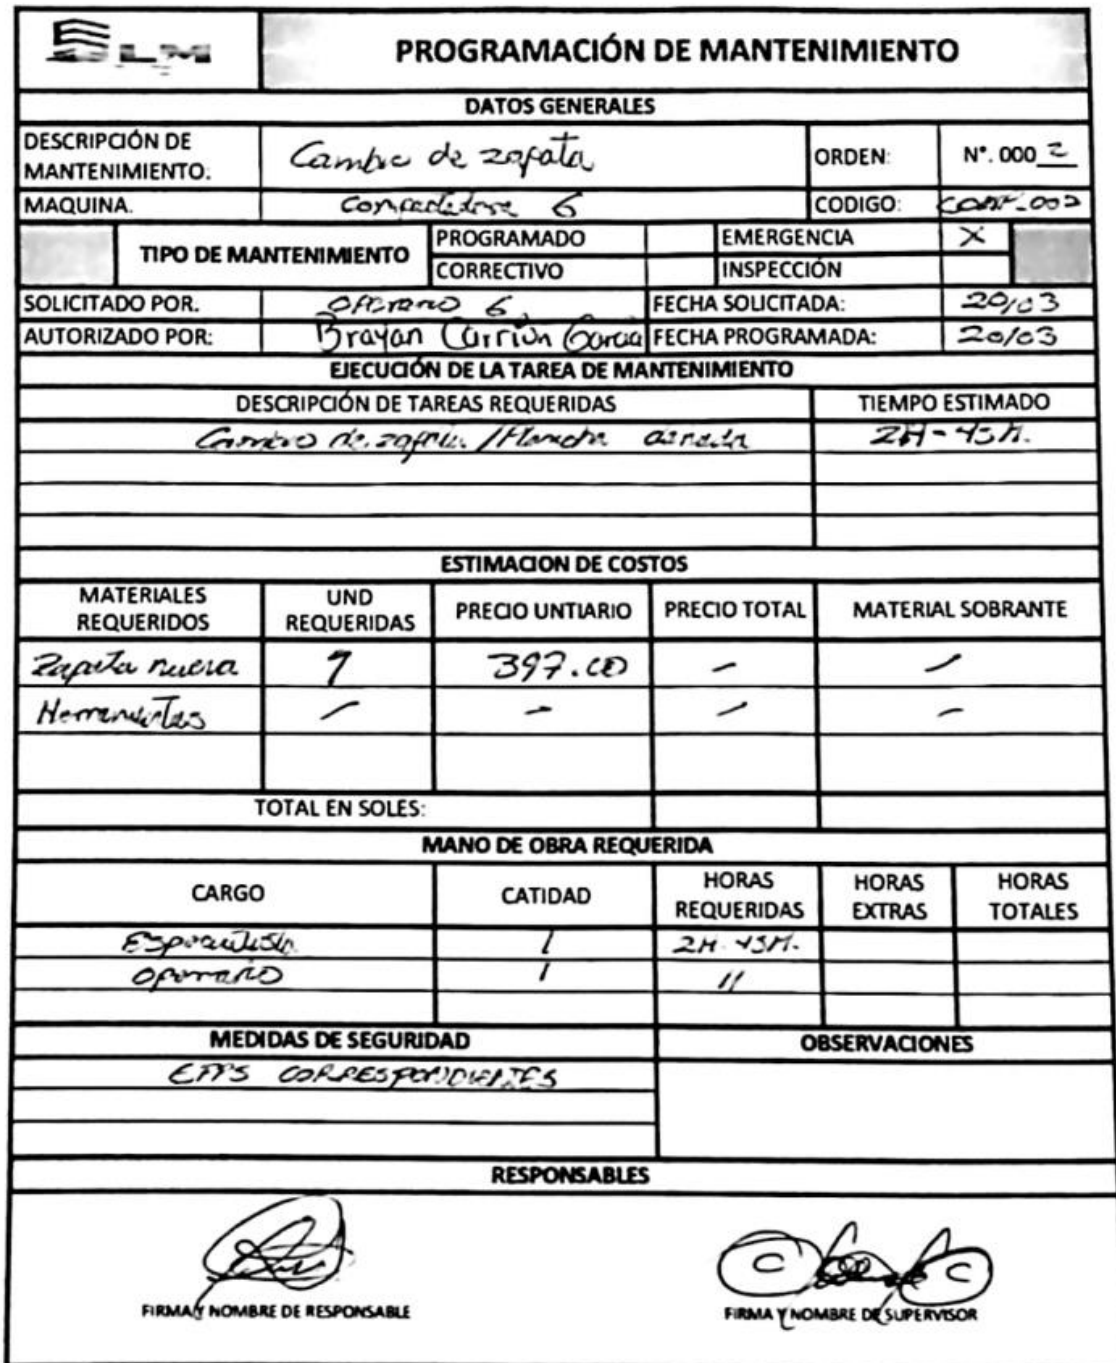 SLM
PROGRAMACIÓN DE MANTENIMIENTO
DATOS GENERALES
DESCRIPCIÓN DE MANTENIMIENTO: Cambio de zapata ORDEN: N°. 000 2
MAQUINA. Compactadora 6 CODIGO: COMP-002
TIPO DE MANTENIMIENTO PROGRAMADO EMERGENCIA X
CORRECTIVO INSPECCIÓN
SOLICITADO POR. Operario 6 FECHA SOLICITADA: 20/03
AUTORIZADO POR: Brayan Carrión Garcia FECHA PROGRAMADA: 20/03
EJECUCIÓN DE LA TAREA DE MANTENIMIENTO
DESCRIPCIÓN DE TAREAS REQUERIDAS TIEMPO ESTIMADO
Cambio de zapata / Plancha dañada 2H-45M.
ESTIMACION DE COSTOS
MATERIALES REQUERIDOS UND REQUERIDAS PRECIO UNTIARIO PRECIO TOTAL MATERIAL SOBRANTE
Zapata nueva 1 397.00 - -
Herramientas - - - -
TOTAL EN SOLES:
MANO DE OBRA REQUERIDA
CARGO CATIDAD HORAS REQUERIDAS HORAS EXTRAS HORAS TOTALES
Especialista 1 2H-45M.
Operario 1 "
MEDIDAS DE SEGURIDAD OBSERVACIONES
EPPS CORRESPONDIENTES
RESPONSABLES
FIRMA Y NOMBRE DE RESPONSABLE FIRMA Y NOMBRE DE SUPERVISOR